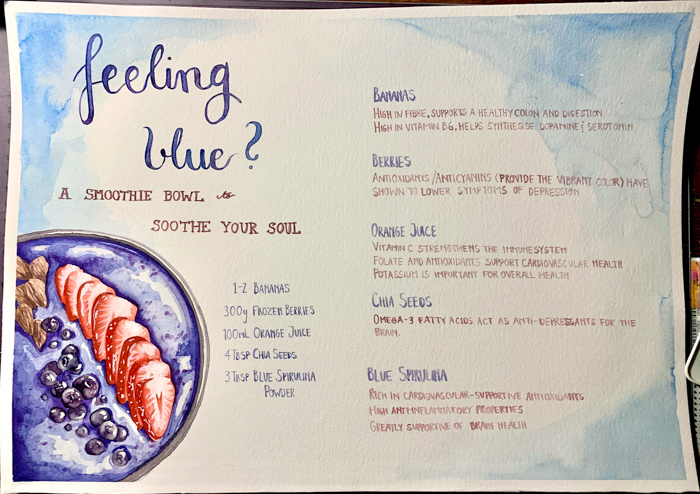 feeling
blue?
A SMOOTHIE BOWL to
SOOTHE YOUR SOUL
1-2 BANANAS
300g FROZEN BERRIES
100mL ORANGE JUICE
4TBSP CHIA SEEDS
3TBSP BLUE SPIRULINA
POWDER
BANANAS
HIGH IN FIBRE, SUPPORTS A HEALTHY COLON AND DIGESTION
HIGH IN VITAMIN B6, HELPS SYNTHESISE DOPAMINE & SEROTONIN
BERRIES
ANTIOXIDANTS/ANTICYANINS (PROVIDE THE VIBRANT COLOR) HAVE
SHOWN TO LOWER SYMPTOMS OF DEPRESSION
ORANGE JUICE
VITAMIN C STRENGTHENS THE IMMUNESYSTEM
FOLATE AND ANTIOXIDANTS SUPPORT CARDIOVASCULAR HEALTH
POTASSIUM IS IMPORTANT FOR OVERALL HEALTH
CHIA SEEDS
OMEGA-3 FATTY ACIDS ACT AS ANTI-DEPRESSANTS FOR THE
BRAIN.
BLUE SPIRULINA
RICH IN CARDIOVASCULAR-SUPPORTIVE ANTIOXIDANTS
HIGH ANTI-INFLAMMATORY PROPERTIES
GREATLY SUPPORTIVE OF BRAIN HEALTH